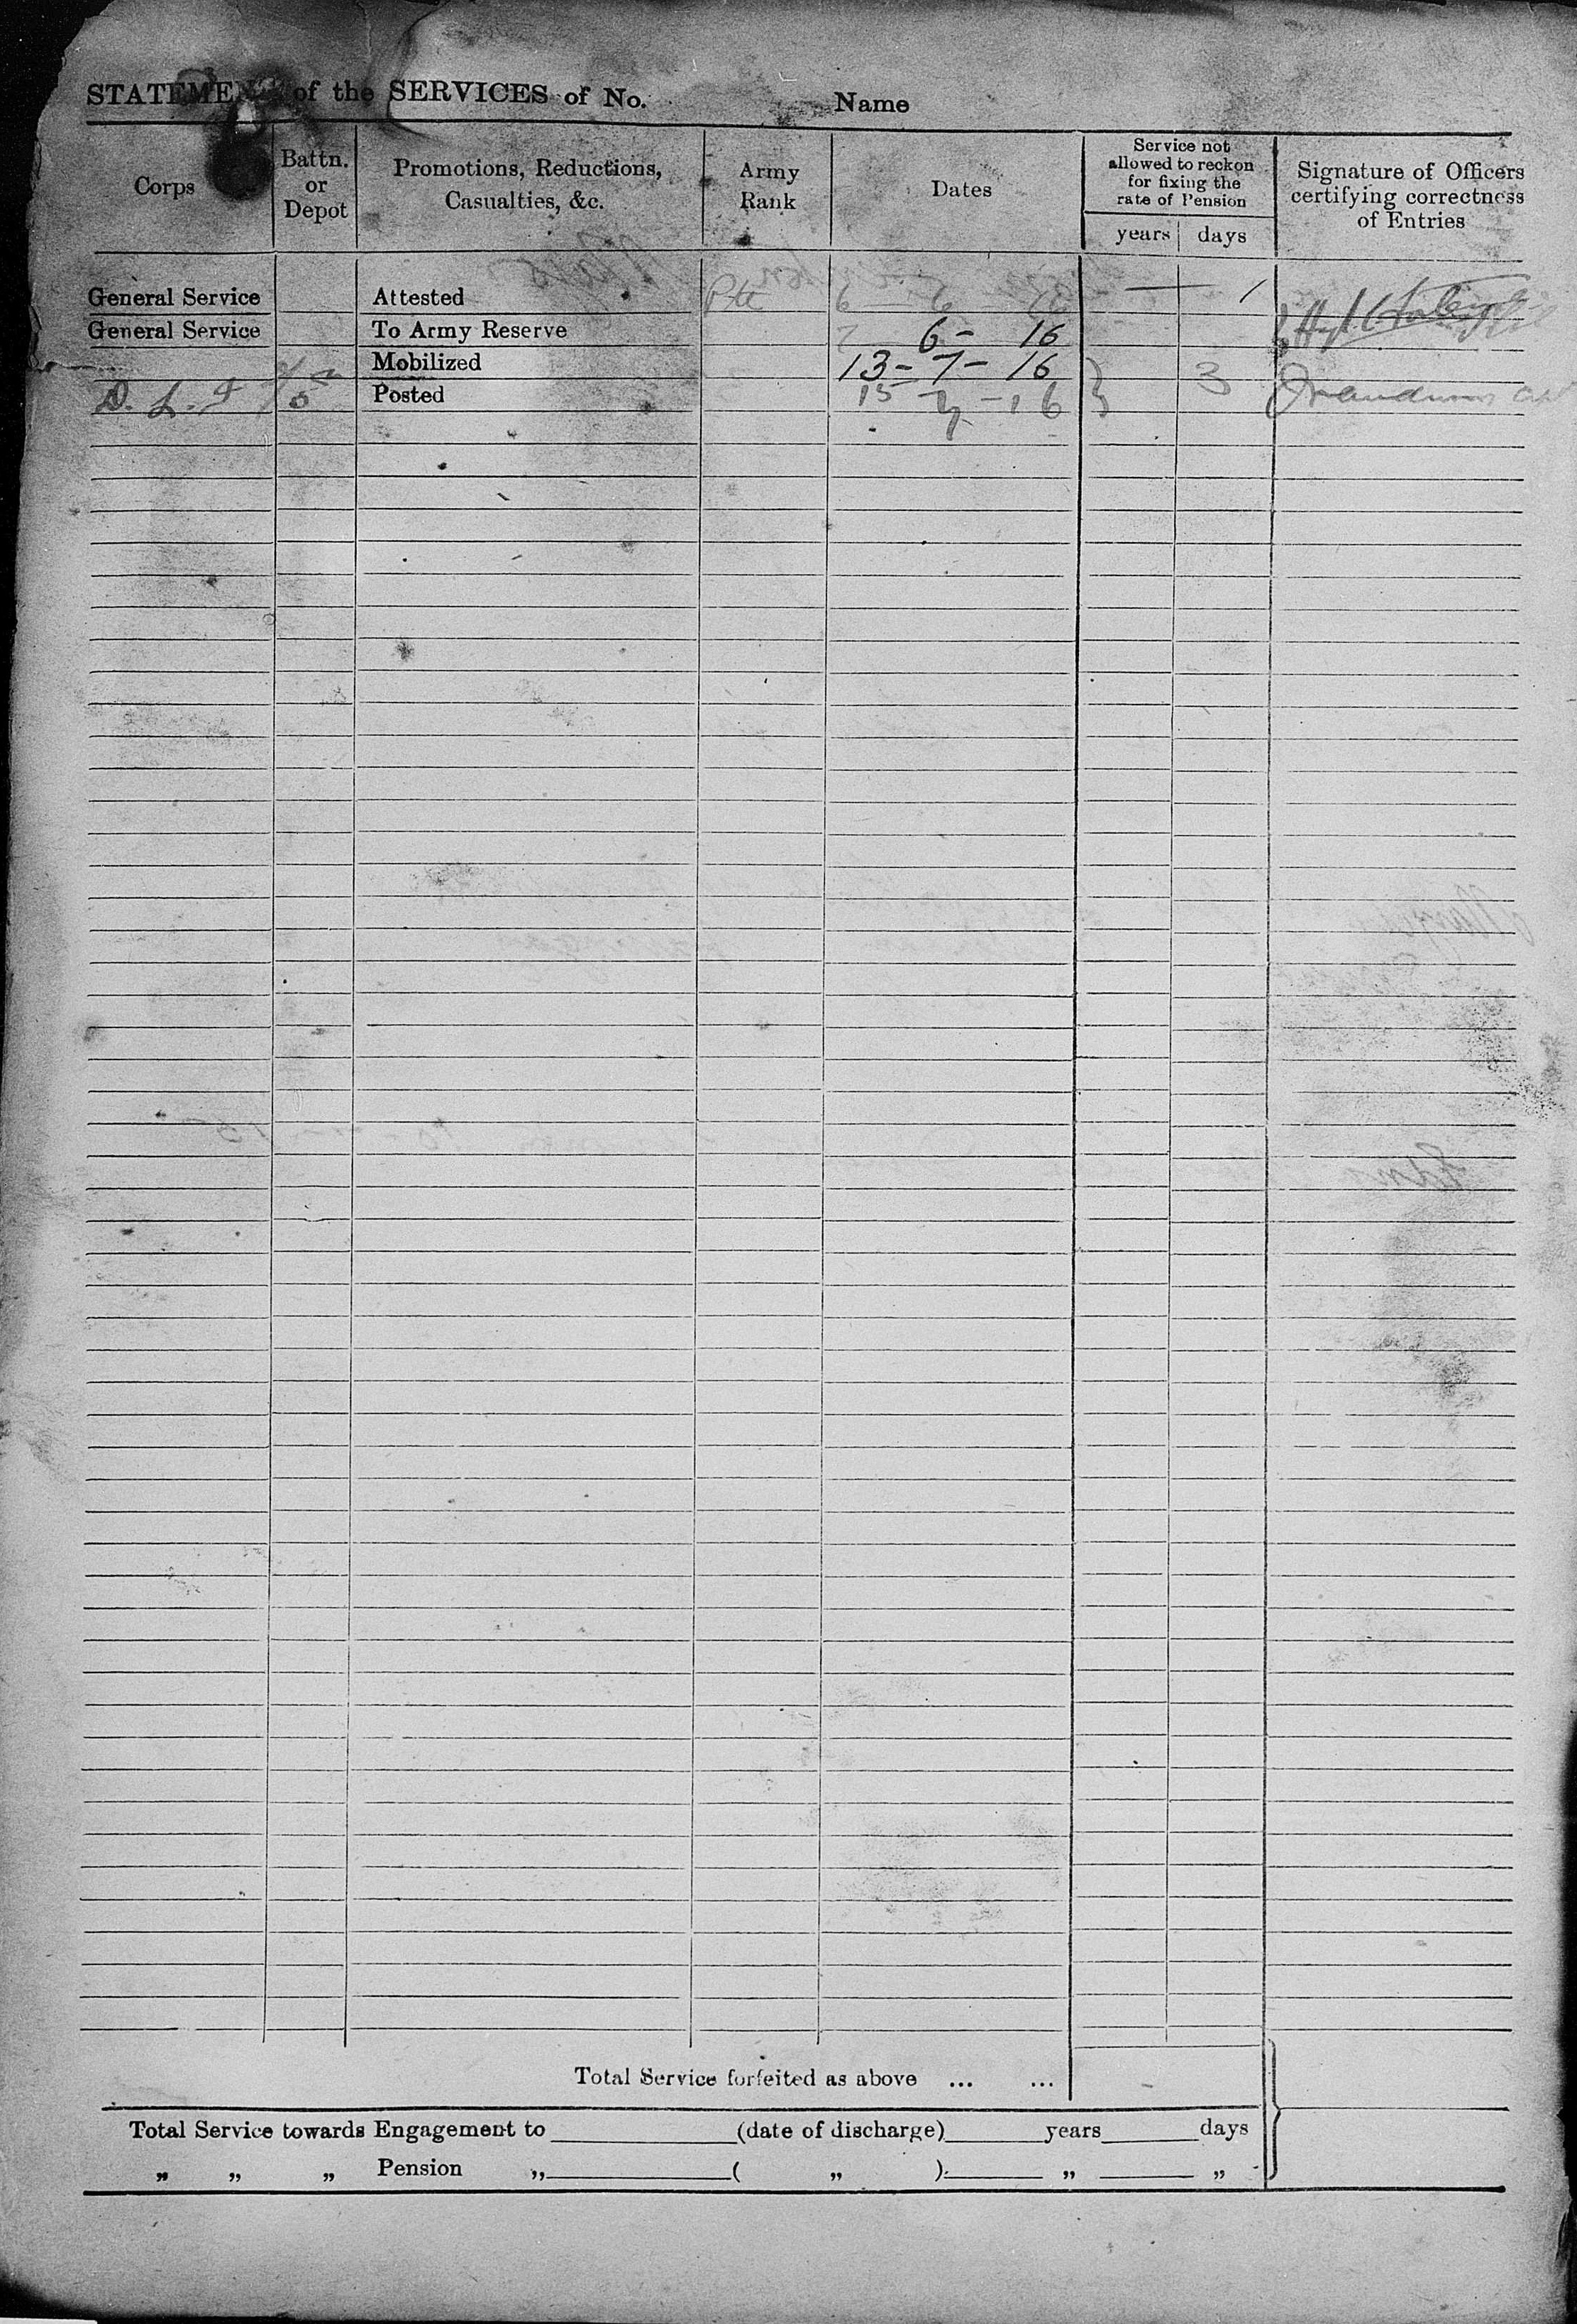 STATEMENT of the SERVICES of No. Name
Corps
Battn.
or
Depot
Promotions, Reductions,
Casualties, &c.
Army
Rank
Dates
Service not
allowed to reckon
for fixing the
rate of Pension
years days
Signature of Officers
certifying correctness
of Entries
General Service Attested Pte 6 6 16 — 1
General Service To Army Reserve 7 6 - 16
Mobilized 13 - 7 - 16
D. L. I Posted 15 - 7 - 16 3
Total Service forfeited as above ... ...
Total Service towards Engagement to (date of discharge) years days
„ „ „ Pension „ ( „ ) „ „